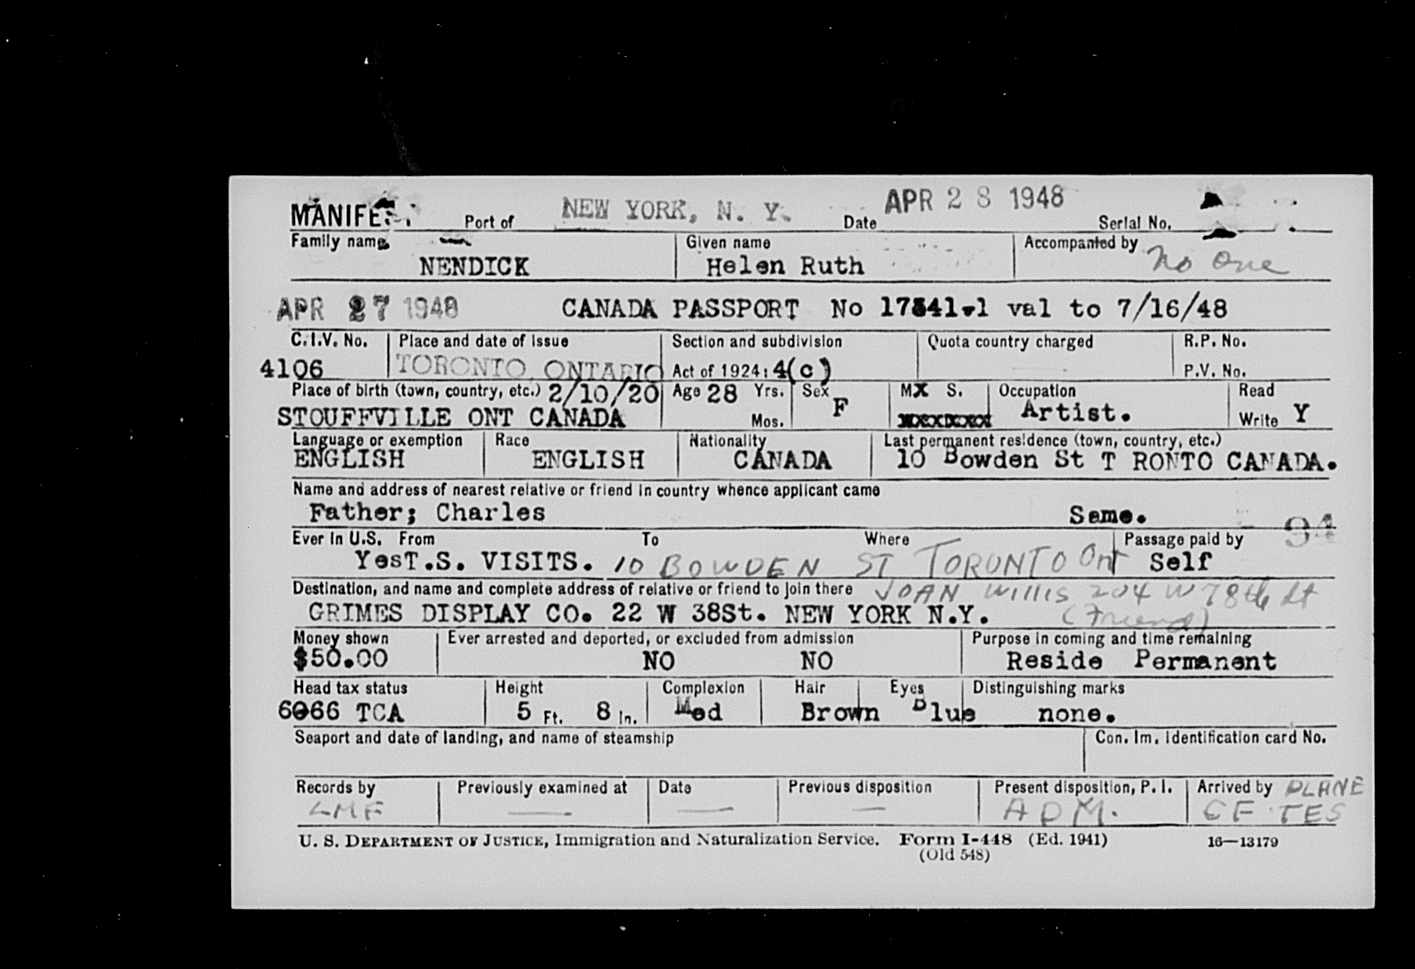 MANIFEST Port of NEW YORK, N. Y. Date APR 28 1948 Serial No.
Family name Given name Accompanied by
NENDICK Helen Ruth No One
APR 27 1948 CANADA PASSPORT No val to 7/16/48
C.I.V. No. Place and date of issue Section and subdivision Quota country charged R.P. No.
4106 TORONTO ONTARIO Act of 1924: 4(c) P.V. No.
Place of birth (town, country, etc.) 2/10/20 Age 28 Yrs. Sex F M S. Occupation Read
STOUFFVILLE ONT CANADA Mos. Artist. Write Y
Language or exemption Race Nationality Last permanent residence (town, country, etc.)
ENGLISH ENGLISH CANADA 10 Bowden St T RONTO CANADA.
Name and address of nearest relative or friend in country whence applicant came
Father; Charles Same.
94
Ever in U.S. From To Where Passage paid by
YesT.S. VISITS. 10 BOWDEN ST TORONTO Ont Self
Destination, and name and complete address of relative or friend to join there JOAN Willis 204 W 78th St
GRIMES DISPLAY CO. 22 W 38St. NEW YORK N.Y. (Friend)
Money shown Ever arrested and deported, or excluded from admission Purpose in coming and time remaining
$50.00 NO NO Reside Permanent
Head tax status Height Complexion Hair Eyes Distinguishing marks
6066 TCA 5 Ft. 8 In. Med Brown Blue none.
Seaport and date of landing, and name of steamship Con. Im. Identification card No.
Records by Previously examined at Date Previous disposition Present disposition, P. I. Arrived by PLANE
LMF — — — ADM. CF-TES
U. S. DEPARTMENT OF JUSTICE, Immigration and Naturalization Service. Form I-448 (Ed. 1941) 16—13179
(Old 548)